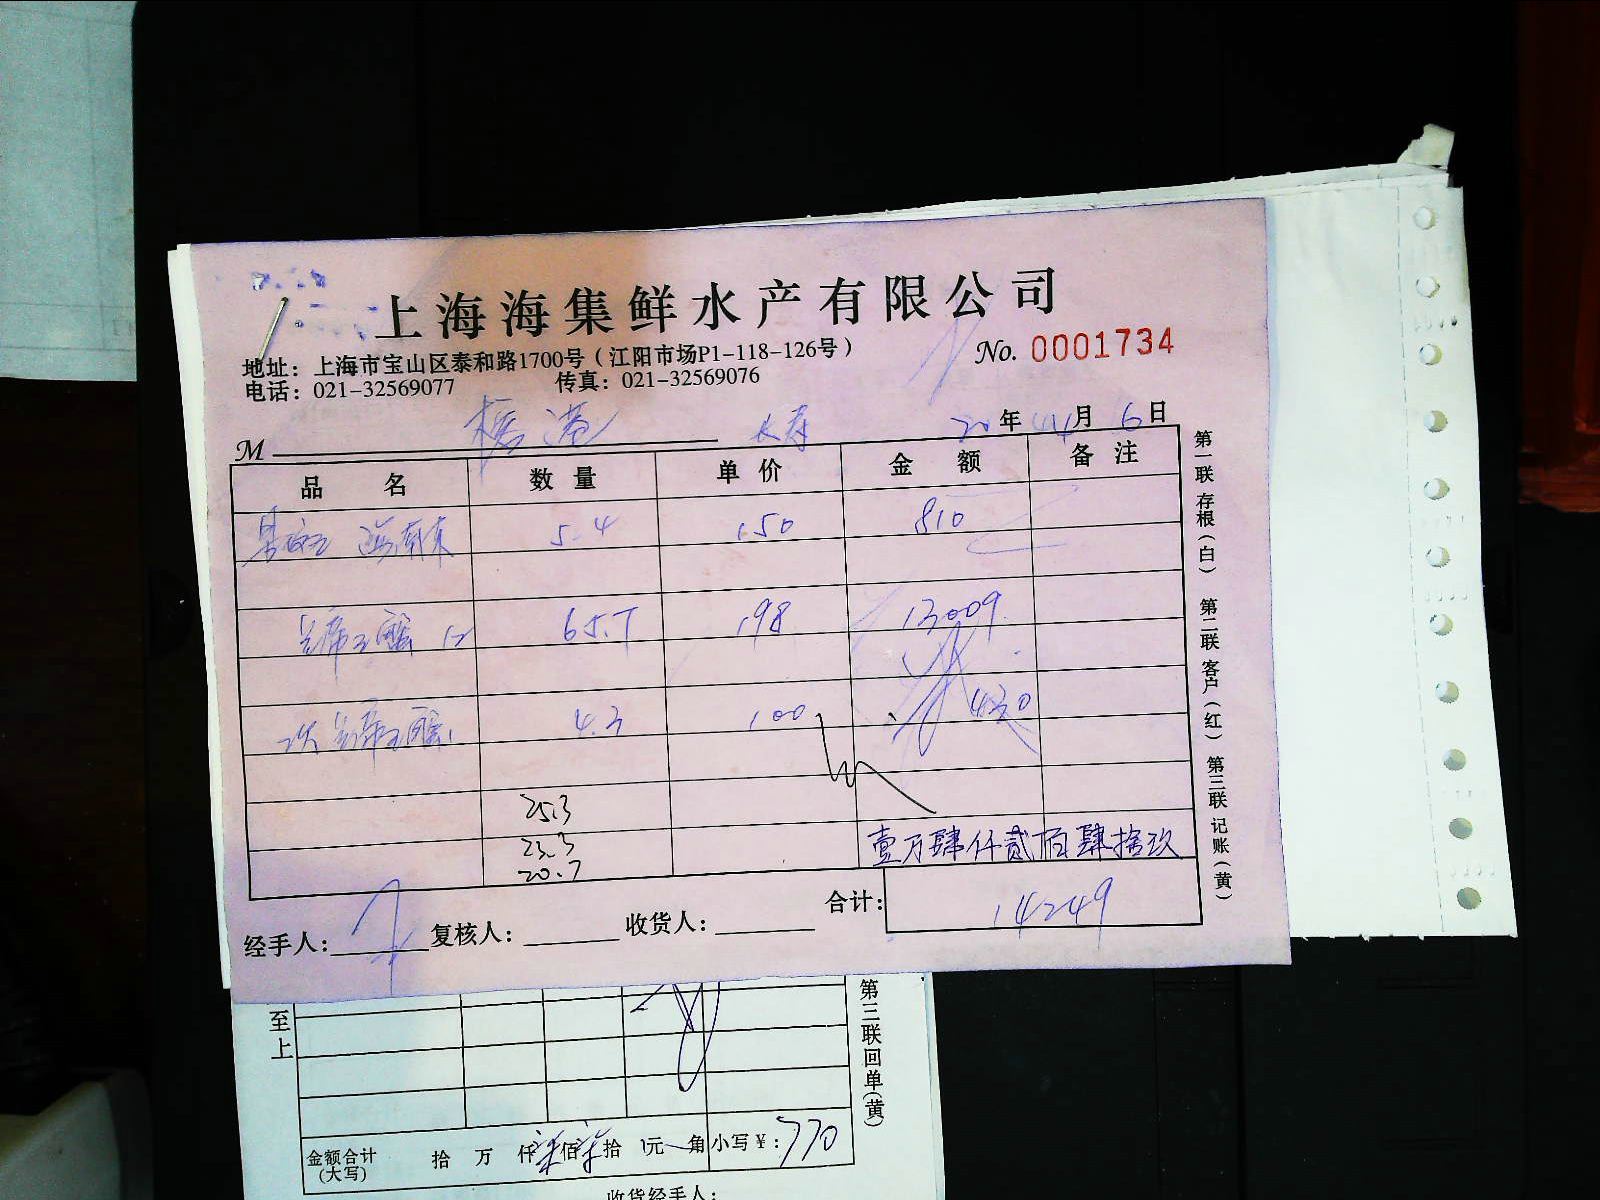 上海海集鲜水产有限公司
地址：上海市宝山区泰和路1700号（江阳市场P1-118-126号）
No. 0001734
电话：021-32569077 传真：021-32569076
M 长寿 20年 月 6日
品名 数量 单价 金额 备注
5.4 150 810
65.7 198 13009
4.3 100 430
25.3
23.3
20.7
壹万肆仟贰佰肆拾玖
合计： 14249
经手人： 复核人： 收货人：
第一联 存根（白） 第二联 客户（红） 第三联 记账（黄）
至
上
第三联回单（黄）
金额合计（大写） 拾 万 仟柒佰柒拾 元 角 小写￥：770
收货经手人：